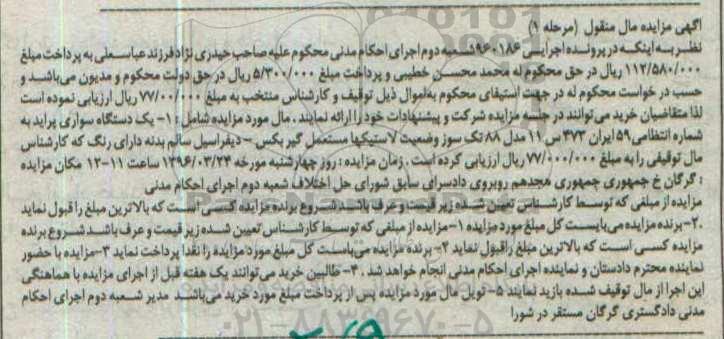 آگهی مزایده مال منقول (مرحله ۱)
نظر به اینکه در پرونده اجرایی ۹۶۰۱۸۶ شعبه دوم اجرای احکام مدنی محکوم علیه صاحب حیدری نژاد فرزند عباسعلی به پرداخت مبلغ
۱۱۲/۵۸۰/۰۰۰ ریال در حق محکوم له محمد محسن خطیبی و پرداخت مبلغ ۵/۳۰۰/۰۰۰ ریال در حق دولت محکوم و مدیون می‌باشد و
حسب در خواست محکوم له در جهت استیفای محکوم به اموال ذیل توقیف و کارشناس منتخب به مبلغ ۷۷/۰۰/۰۰۰ ریال ارزیابی نموده است
لذا متقاضیان خرید می توانند در جلسه مزایده شرکت و پیشنهادات خود را ارائه نمایند. مال مورد مزایده شامل: ۱- یک دستگاه سواری پراید به
شماره انتظامی ۵۹ ایران ۴۷۳ س ۱۱ مدل ۸۸ تک سوز وضعیت لاستیکها مستعمل گیر بکس – دیفراسیل سالم بدنه دارای رنگ که کارشناس
مال توقیفی را به مبلغ ۷۷/۰۰۰/۰۰۰ ریال ارزیابی کرده است. زمان مزایده: روز چهارشنبه مورخه ۱۳۹۶/۰۳/۲۴ ساعت ۱۱-۱۲ مکان مزایده
: گرگان خ جمهوری جمهوری هجدهم روبروی دادسرای سابق شورای حل اختلاف شعبه دوم اجرای احکام مدنی
مزایده از مبلغی که توسط کارشناس تعیین شده زیر قیمت و عرف باشد شروع برنده مزایده کسی است که بالاترین مبلغ را قبول نماید
.۲-برنده مزایده می بایست کل مبلغ مورد مزایده ۱-مزایده از مبلغی که توسط کارشناس تعیین شده زیر قیمت و عرف باشد شروع برنده
مزایده کسی است که بالاترین مبلغ راقبول نماید ۲- برنده مزایده می‌باست کل مبلغ مورد مزایده را نقدا پرداخت نماید ۳-مزایده با حضور
نماینده محترم دادستان و نماینده اجرای احکام مدنی انجام خواهد شد. ۴- طالبین خرید می توانند یک هفته قبل از اجرای مزایده با هماهنگی
این اجرا از مال توقیف شده بازید نمایند ۵- تویل مال مورد مزایده پس از پرداخت مبلغ مورد خرید می‌باشد مدیر شعبه دوم اجرای احکام
مدنی دادگستری گرگان مستقر در شورا
۰۲۱-۸۸۳۴۹۶۷۰-۵